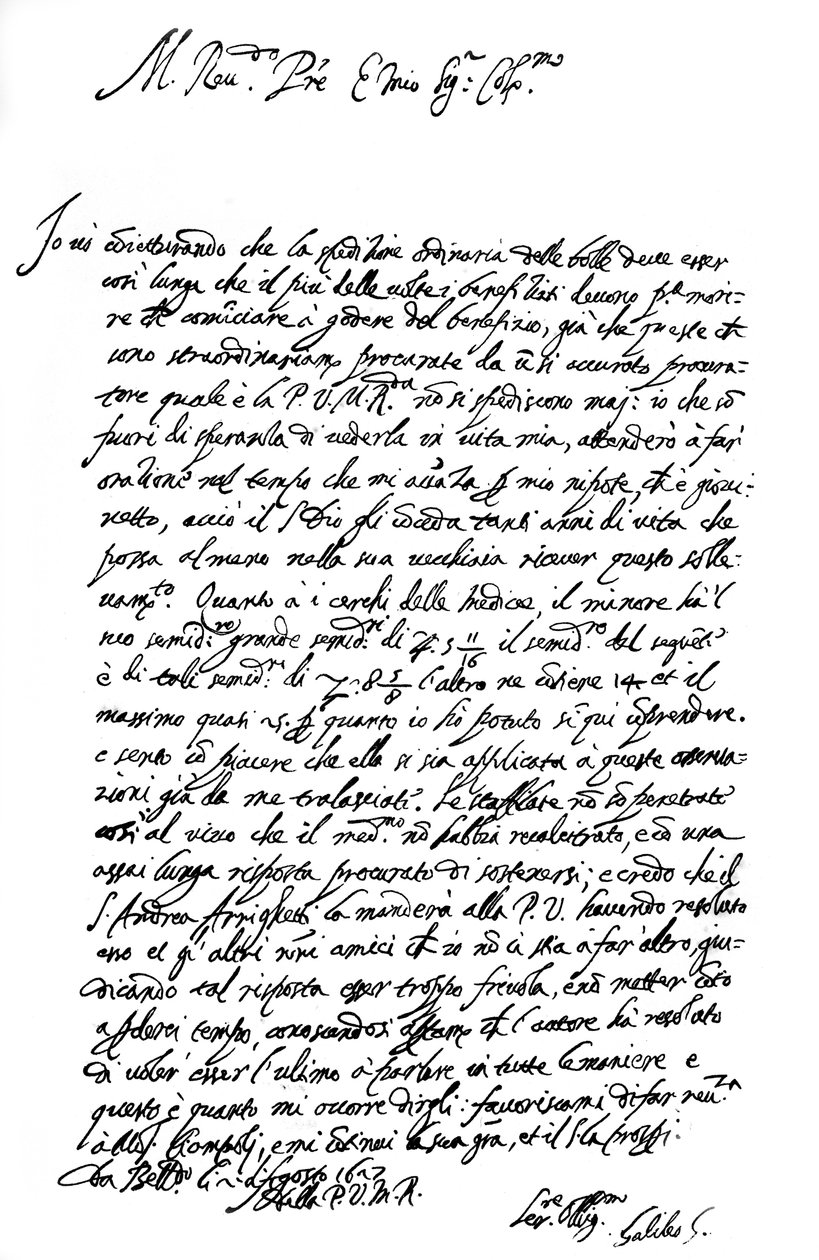 M. Reu.do P.re E mio Sig.r Col.mo
Io vò cōietturando che la spedizione ordinaria delle bolle deve esser
così lunga che il più delle volte i benefiziati devono p.a mori=
re ch comīciare à godere del benefizio, già che queste ch
sono straordinariam.te procurate da ū sì accurato procura=
tore quale è la P. V. M. R.da nō si spediscono mai: io che sō
fuori di speranza di vederla in vita mia, attenderò à far
orazione nel tempo che mi avāza p mio nipote, ch è giovi:
netto, acciò il S. Dio gli cōceda tanti anni di vita che
possa almeno nella sua vecchiaia ricever questo solle:
vam.to. Quanto à i cerchi delle Medicee, il minore hà 'l
suo semid:ro grande semid:ri di 4: 5 11/16 il semid.ro del seguēte
è di tali semid:ri di 7: 8 5/8 l'altro ne cōtiene 14 et il
massimo quasi 25. p quanto io hò potuto sī qui cōprendere.
e sento cō piacere che ella si sia applicata à queste osserva=
zioni già da me tralasciate. Le staffilate nō sō penetrate
così al vivo che il med.mo nō habbia recalcitrato, e cō una
assai lunga risposta procurato di sostenersi; e credo che il
S. Andrea Arrighetti la manderà alla P. V. havendo resoluto
esso et gl'altri nr̄i amici ch io nō ci stia à far altro, giu=
dicando tal risposta esser troppo frivola, e nō metter cōto
a pderci tempo, conoscendosi ch l'autore hà resoluto
di voler esser l'ultimo à parlare in tutte le maniere e
questo è quanto mi occorre dirgli: favoriscami di far reu.za
à Mōs. Ciampoli, e mi cōtinui la sua gr̄a, et il S. la prosp.i
Da Bell.do li d'Agosto 1627
Della P. V. M. R.
Ser.re Oblig.mo
Galileo G.